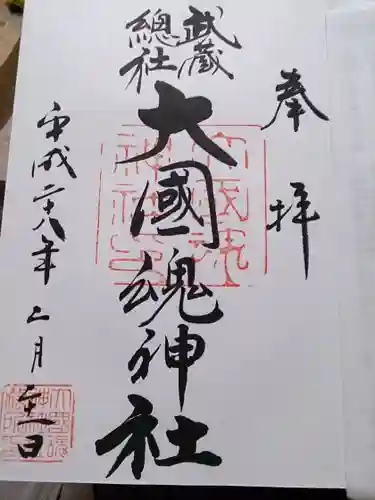 奉拝
武蔵
總社
大國魂神社
平成二十八年二月
廿一日